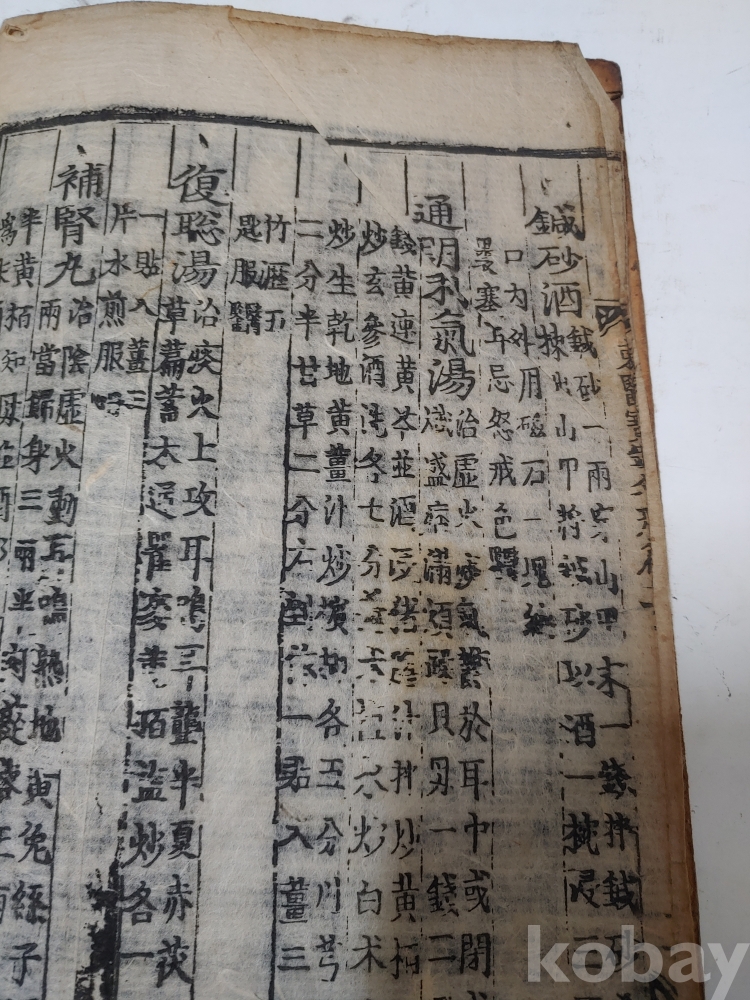 鍼砂酒鍼砂一兩穿山甲末一錢拌鍼砂
揀出山甲將鍼砂以酒一椀浸三
口內外用磁石一塊綿
裹塞耳忌怒戒色醫
通明利氣湯治虛火痰氣鬱於耳中或閉
熾盛痞滿煩躁貝母一錢二
錢黃連黃芩並酒浸猪膽汁拌炒黃栢
炒玄參酒洗各七分蒼朮盐水炒白朮
炒生乾地黃薑汁炒檳榔各五分川芎
二分半甘草二分右剉作一貼入薑三
竹瀝五
匙服醫
復聰湯治痰火上攻耳鳴耳聾半夏赤茯
草萹蓄木通瞿麥黃栢盐炒各一
一貼入薑三
片水煎服
補腎丸治陰虛火動耳鳴熟地黃兔絲子
兩當歸身三兩半肉蓯蓉
半黃栢知母並酒
爲末
kobay